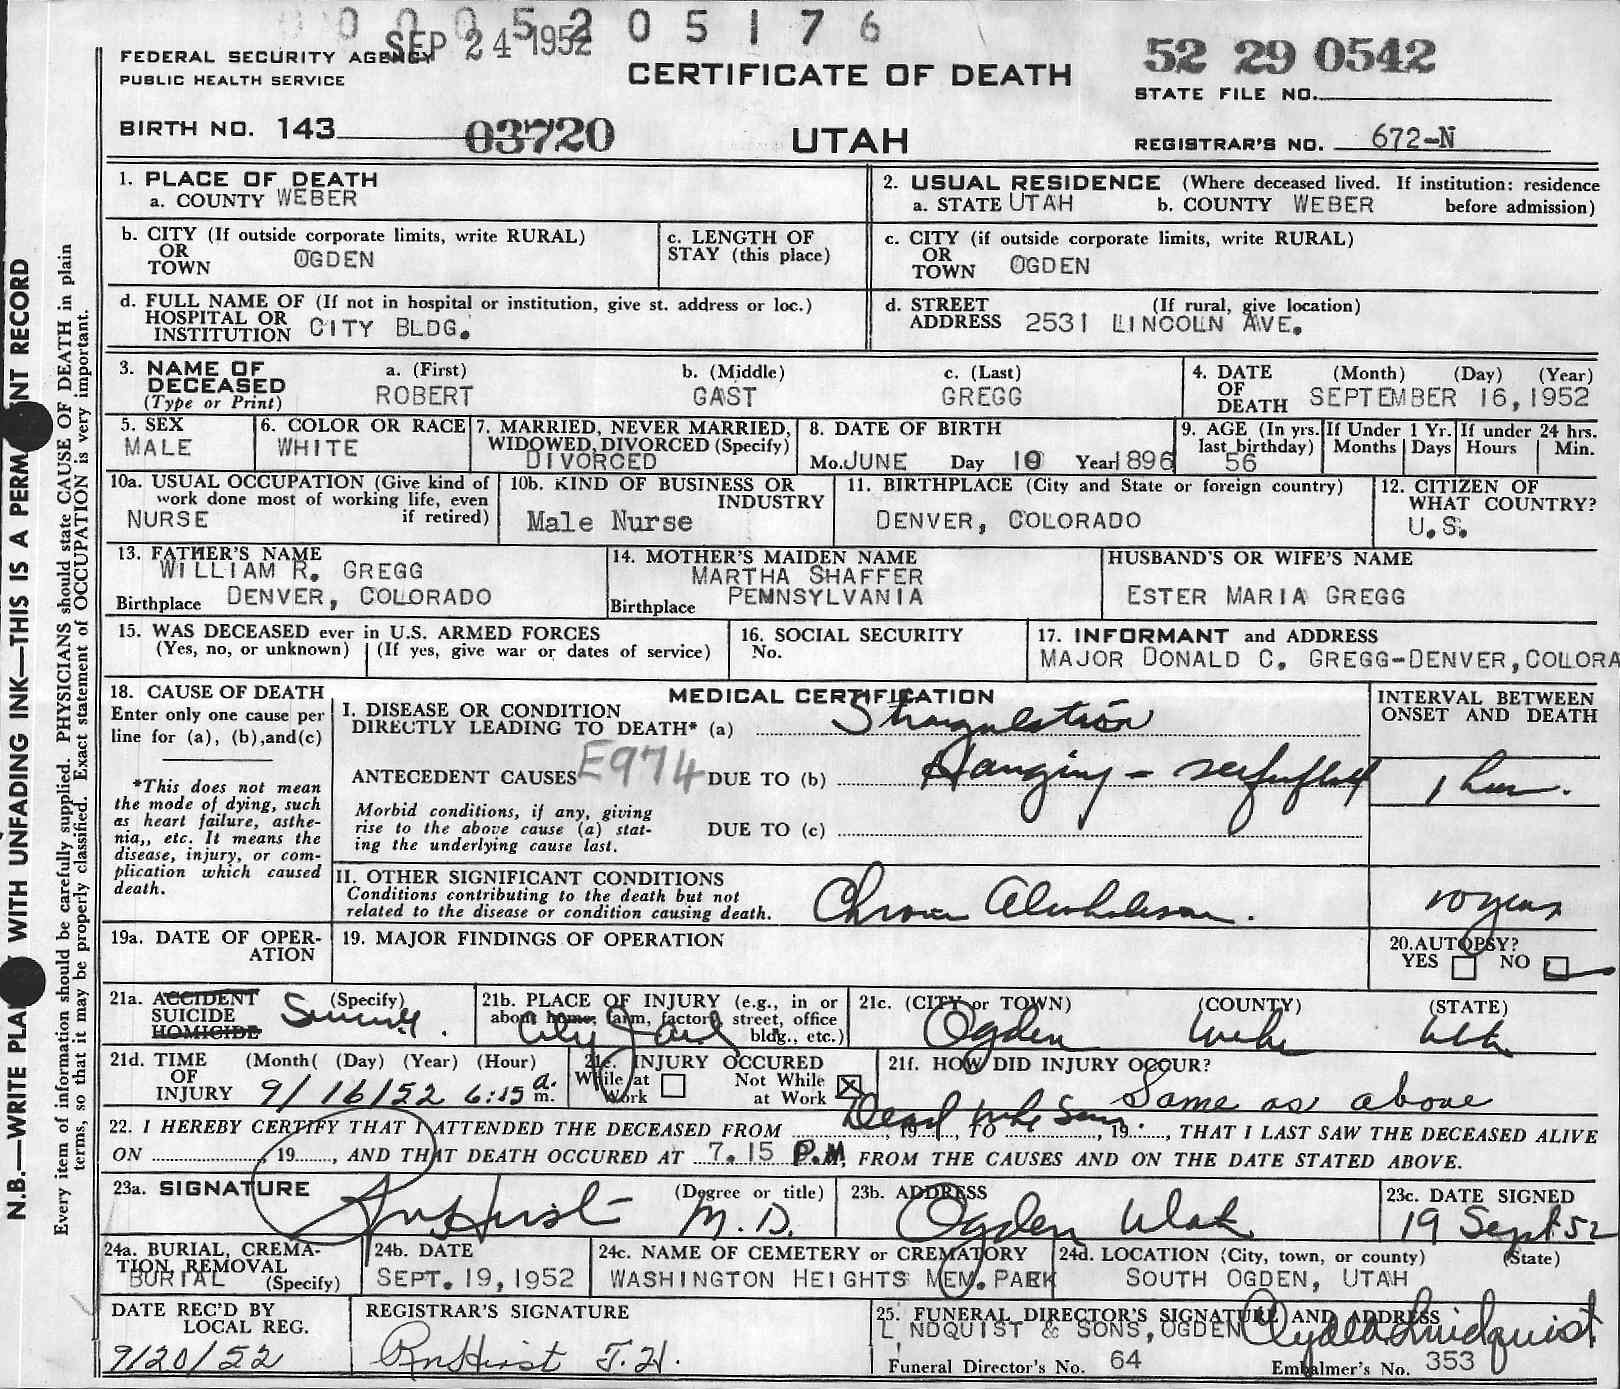 0 0 0 5 2 0 5 1 7 6
SEP 24 1952
52 29 0542
FEDERAL SECURITY AGENCY
PUBLIC HEALTH SERVICE
CERTIFICATE OF DEATH
STATE FILE NO.
BIRTH NO. 143 03720
UTAH
REGISTRAR'S NO. 672-N
1. PLACE OF DEATH
a. COUNTY WEBER
2. USUAL RESIDENCE (Where deceased lived. If institution: residence before admission)
a. STATE UTAH b. COUNTY WEBER
b. CITY (If outside corporate limits, write RURAL)
OR
TOWN OGDEN
c. LENGTH OF
STAY (this place)
c. CITY (if outside corporate limits, write RURAL)
OR
TOWN OGDEN
d. FULL NAME OF (If not in hospital or institution, give st. address or loc.)
HOSPITAL OR
INSTITUTION CITY BLDG.
d. STREET (If rural, give location)
ADDRESS 2531 LINCOLN AVE.
3. NAME OF
DECEASED
(Type or Print)
a. (First) b. (Middle) c. (Last)
ROBERT GAST GREGG
4. DATE (Month) (Day) (Year)
OF
DEATH SEPTEMBER 16, 1952
5. SEX
MALE
6. COLOR OR RACE
WHITE
7. MARRIED, NEVER MARRIED,
WIDOWED, DIVORCED (Specify)
DIVORCED
8. DATE OF BIRTH
Mo. JUNE Day 10 Year 1896
9. AGE (In yrs.
last birthday)
56
If Under 1 Yr.
Months Days
If under 24 hrs.
Hours Min.
10a. USUAL OCCUPATION (Give kind of
work done most of working life, even
if retired)
NURSE
10b. KIND OF BUSINESS OR
INDUSTRY
Male Nurse
11. BIRTHPLACE (City and State or foreign country)
DENVER, COLORADO
12. CITIZEN OF
WHAT COUNTRY?
U.S.
13. FATHER'S NAME
WILLIAM R. GREGG
Birthplace DENVER, COLORADO
14. MOTHER'S MAIDEN NAME
MARTHA SHAFFER
Birthplace PEMNSYLVANIA
HUSBAND'S OR WIFE'S NAME
ESTER MARIA GREGG
15. WAS DECEASED ever in U.S. ARMED FORCES
(Yes, no, or unknown) (If yes, give war or dates of service)
16. SOCIAL SECURITY
No.
17. INFORMANT and ADDRESS
MAJOR DONALD C. GREGG-DENVER, COLORA
18. CAUSE OF DEATH
Enter only one cause per
line for (a), (b),and(c)
*This does not mean
the mode of dying, such
as heart failure, asthe-
nia,, etc. It means the
disease, injury, or com-
plication which caused
death.
MEDICAL CERTIFICATION
I. DISEASE OR CONDITION
DIRECTLY LEADING TO DEATH* (a) Strangulation
ANTECEDENT CAUSES E974 DUE TO (b) Hanging - self
Morbid conditions, if any, giving
rise to the above cause (a) stat-
ing the underlying cause last.
DUE TO (c)
INTERVAL BETWEEN
ONSET AND DEATH
1 hour.
II. OTHER SIGNIFICANT CONDITIONS
Conditions contributing to the death but not
related to the disease or condition causing death.
Chronic Alcoholism.
10 years
19a. DATE OF OPER-
ATION
19. MAJOR FINDINGS OF OPERATION
20.AUTOPSY?
YES NO
21a. ACCIDENT (Specify)
SUICIDE
HOMICIDE
Suicide.
21b. PLACE OF INJURY (e.g., in or
about home, farm, factory street, office
bldg., etc.)
City Jail
21c. (CITY or TOWN) (COUNTY) (STATE)
Ogden Weber Utah
21d. TIME (Month( (Day) (Year) (Hour)
OF
INJURY 9/16/52 6:15 a.m.
21e. INJURY OCCURED
While at
Work
Not While
at Work
21f. HOW DID INJURY OCCUR?
Same as above
Dead when seen.
22. I HEREBY CERTIFY THAT I ATTENDED THE DECEASED FROM , 19 , TO , 19 , THAT I LAST SAW THE DECEASED ALIVE
ON , 19 , AND THAT DEATH OCCURED AT 7.15 P.M, FROM THE CAUSES AND ON THE DATE STATED ABOVE.
23a. SIGNATURE (Degree or title)
Hirst M.D.
23b. ADDRESS
Ogden Utah
23c. DATE SIGNED
19 Sept. 52
24a. BURIAL, CREMA-
TION, REMOVAL
(Specify)
BURIAL
24b. DATE
SEPT. 19, 1952
24c. NAME OF CEMETERY or CREMATORY
WASHINGTON HEIGHTS MEM. PARK
24d. LOCATION (City, town, or county) (State)
SOUTH OGDEN, UTAH
DATE REC'D BY
LOCAL REG.
9/20/52
REGISTRAR'S SIGNATURE
Hirst
25. FUNERAL DIRECTOR'S SIGNATURE AND ADDRESS
L NDQUIST & SONS, OGDEN
Lindquist
Funeral Director's No. 64 Embalmer's No. 353
N.B.—WRITE PLA WITH UNFADING INK—THIS IS A PERM NT RECORD
Every item of information should be carefully supplied. PHYSICIANS should state CAUSE OF DEATH in plain
terms, so that it may be properly classified. Exact statement of OCCUPATION is very important.